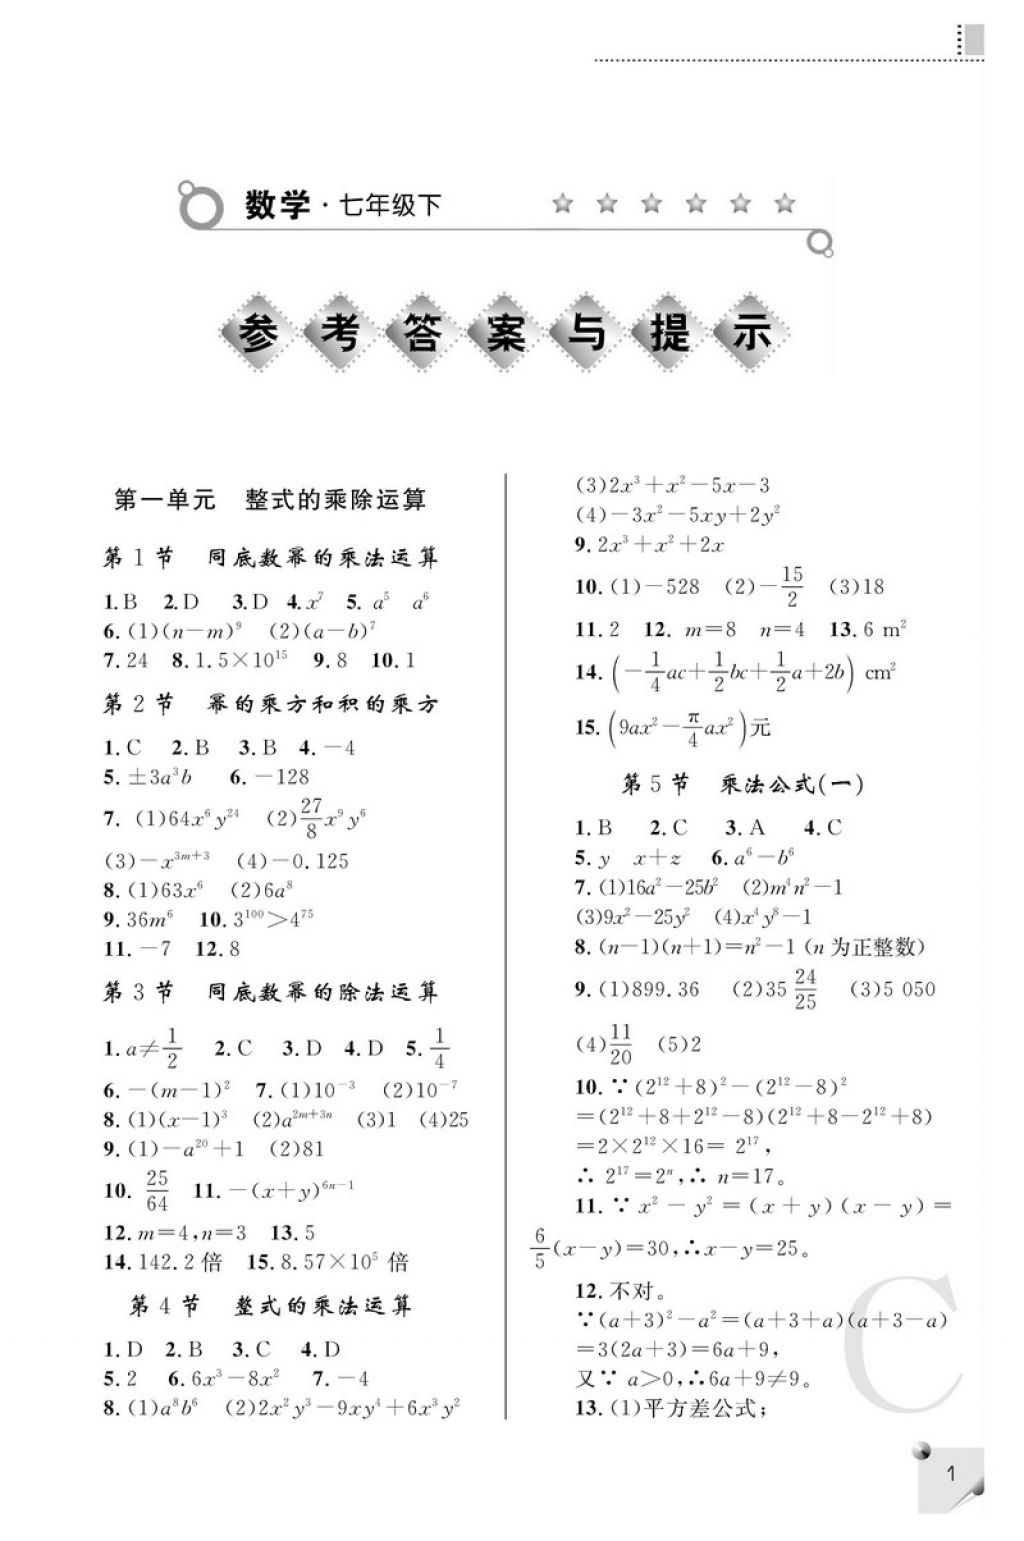 数学·七年级下
参考答案与提示
第一单元 整式的乘除运算
第 1 节 同底数幂的乘法运算
1.B 2.D 3.D 4.x⁷ 5. a⁵ a⁶
6.(1)(n－m)⁹ (2)(a－b)⁷
7.24 8.1.5×10¹⁵ 9.8 10.1
第 2 节 幂的乘方和积的乘方
1.C 2.B 3.B 4.－4
5.±3a³b 6.－128
7. (1)64x⁶y²⁴ (2)27/8x⁹y⁶
(3)－x³ᵐ⁺³ (4)－0.125
8.(1)63x⁶ (2)6a⁸
9.36m⁶ 10.3¹⁰⁰＞4⁷⁵
11.－7 12.8
第 3 节 同底数幂的除法运算
1.a≠1/2 2.C 3.D 4.D 5.1/4
6.－(m－1)² 7.(1)10⁻³ (2)10⁻⁷
8.(1)(x－1)³ (2)a²ᵐ⁺³ⁿ (3)1 (4)25
9.(1)－a²⁰＋1 (2)81
10. 25/64 11.－(x＋y)⁶ⁿ⁻¹
12.m＝4,n＝3 13.5
14.142.2 倍 15.8.57×10⁵ 倍
第 4 节 整式的乘法运算
1.D 2.B 3.C 4.D
5.2 6.6x³－8x² 7.－4
8.(1)a⁸b⁶ (2)2x²y³－9xy⁴＋6x³y²
(3)2x³＋x²－5x－3
(4)－3x²－5xy＋2y²
9.2x³＋x²＋2x
10.(1)－528 (2)－15/2 (3)18
11.2 12. m＝8 n＝4 13.6 m²
14.(－1/4ac＋1/2bc＋1/2a＋2b) cm²
15.(9ax²－π/4ax²)元
第 5 节 乘法公式(一)
1.B 2.C 3.A 4.C
5.y x＋z 6.a⁶－b⁶
7.(1)16a²－25b² (2)m⁴n²－1
(3)9x²－25y² (4)x⁴y⁸－1
8.(n－1)(n＋1)＝n²－1 (n 为正整数)
9.(1)899.36 (2)35 24/25 (3)5 050
(4)11/20 (5)2
10.∵(2¹²＋8)²－(2¹²－8)²
＝(2¹²＋8＋2¹²－8)(2¹²＋8－2¹²＋8)
＝2×2¹²×16＝ 2¹⁷,
∴ 2¹⁷＝2ⁿ,∴ n＝17。
11.∵ x²－y²＝(x＋y)(x－y)＝
6/5(x－y)＝30,∴x－y＝25。
12.不对。
∵(a＋3)²－a²＝(a＋3＋a)(a＋3－a)
＝3(2a＋3)＝6a＋9,
又∵ a＞0,∴6a＋9≠9。
13.(1)平方差公式;
C
1